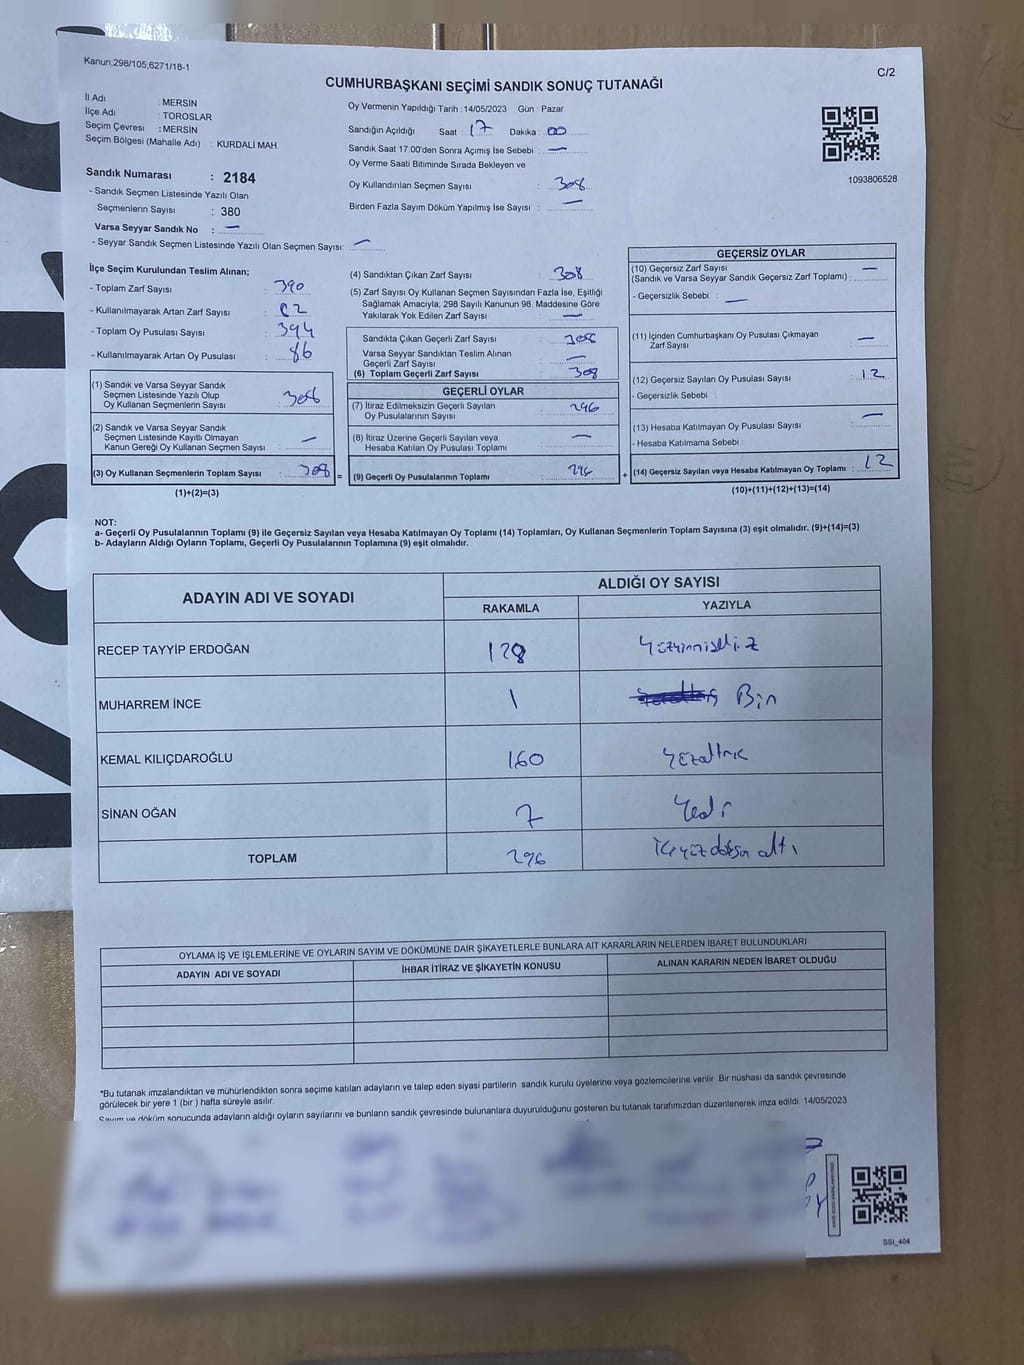 Kanun;298/105;6271/18-1
C/2
CUMHURBAŞKANI SEÇİMİ SANDIK SONUÇ TUTANAĞI
İl Adı : MERSİN
İlçe Adı : TOROSLAR
Seçim Çevresi : MERSİN
Seçim Bölgesi (Mahalle Adı) : KURDALİ MAH.
Sandık Numarası : 2184
- Sandık Seçmen Listesinde Yazılı Olan
Seçmenlerin Sayısı : 380
Varsa Seyyar Sandık No : —
- Seyyar Sandık Seçmen Listesinde Yazılı Olan Seçmen Sayısı: —
Oy Vermenin Yapıldığı Tarih :14/05/2023 Gün : Pazar
Sandığın Açıldığı Saat : 17 Dakika : 00
Sandık Saat 17:00'den Sonra Açımış İse Sebebi : —
Oy Verme Saati Bitiminde Sırada Bekleyen ve
Oy Kullandırılan Seçmen Sayısı : 308
Birden Fazla Sayım Döküm Yapılmış İse Sayısı : —
1093806528
İlçe Seçim Kurulundan Teslim Alınan;
- Toplam Zarf Sayısı : 390
- Kullanılmayarak Artan Zarf Sayısı : 82
- Toplam Oy Pusulası Sayısı : 394
- Kullanılmayarak Artan Oy Pusulası : 86
(1) Sandık ve Varsa Seyyar Sandık
Seçmen Listesinde Yazılı Olup
Oy Kullanan Seçmenlerin Sayısı : 308
(2) Sandık ve Varsa Seyyar Sandık
Seçmen Listesinde Kayıtlı Olmayan
Kanun Gereği Oy Kullanan Seçmen Sayısı : —
(3) Oy Kullanan Seçmenlerin Toplam Sayısı : 308 =
(1)+(2)=(3)
(4) Sandıktan Çıkan Zarf Sayısı : 308
(5) Zarf Sayısı Oy Kullanan Seçmen Sayısından Fazla İse, Eşitliği
Sağlamak Amacıyla, 298 Sayılı Kanunun 98. Maddesine Göre
Yakılarak Yok Edilen Zarf Sayısı : —
Sandıkta Çıkan Geçerli Zarf Sayısı : 308
Varsa Seyyar Sandıktan Teslim Alınan
Geçerli Zarf Sayısı : —
(6) Toplam Geçerli Zarf Sayısı : 308
GEÇERLİ OYLAR
(7) İtiraz Edilmeksizin Geçerli Sayılan
Oy Pusulalarının Sayısı : 296
(8) İtiraz Üzerine Geçerli Sayılan veya
Hesaba Katılan Oy Pusulası Toplamı : —
(9) Geçerli Oy Pusulalarının Toplamı : 296 +
GEÇERSİZ OYLAR
(10) Geçersiz Zarf Sayısı —
(Sandık ve Varsa Seyyar Sandık Geçersiz Zarf Toplamı) :
- Geçersizlik Sebebi : —
(11) İçinden Cumhurbaşkanı Oy Pusulası Çıkmayan
Zarf Sayısı : —
(12) Geçersiz Sayılan Oy Pusulası Sayısı : 12
- Geçersizlik Sebebi :
(13) Hesaba Katılmayan Oy Pusulası Sayısı : —
- Hesaba Katılmama Sebebi :
(14) Geçersiz Sayılan veya Hesaba Katılmayan Oy Toplamı : 12
(10)+(11)+(12)+(13)=(14)
NOT:
a- Geçerli Oy Pusulalarının Toplamı (9) ile Geçersiz Sayılan veya Hesaba Katılmayan Oy Toplamı (14) Toplamları, Oy Kullanan Seçmenlerin Toplam Sayısına (3) eşit olmalıdır. (9)+(14)=(3)
b- Adayların Aldığı Oyların Toplamı, Geçerli Oy Pusulalarının Toplamına (9) eşit olmalıdır.
ADAYIN ADI VE SOYADI
ALDIĞI OY SAYISI
RAKAMLA YAZIYLA
RECEP TAYYİP ERDOĞAN 128
MUHARREM İNCE 1 Bin
KEMAL KILIÇDAROĞLU 160
SİNAN OĞAN 7 Yedi
TOPLAM 296
OYLAMA İŞ VE İŞLEMLERİNE VE OYLARIN SAYIM VE DÖKÜMÜNE DAİR ŞİKAYETLERLE BUNLARA AİT KARARLARIN NELERDEN İBARET BULUNDUKLARI
ADAYIN ADI VE SOYADI
İHBAR İTİRAZ VE ŞİKAYETİN KONUSU
ALINAN KARARIN NEDEN İBARET OLDUĞU
*Bu tutanak imzalandıktan ve mühürlendikten sonra seçime katılan adayların ve talep eden siyasi partilerin sandık kurulu üyelerine veya gözlemcilerine verilir. Bir nüshası da sandık çevresinde
görülecek bir yere 1 (bir ) hafta süreyle asılır.
Sayım ve döküm sonucunda adayların aldığı oyların sayılarını ve bunların sandık çevresinde bulunanlara duyurulduğunu gösteren bu tutanak tarafımızdan düzenlenerek imza edildi. 14/05/2023
SSI_404